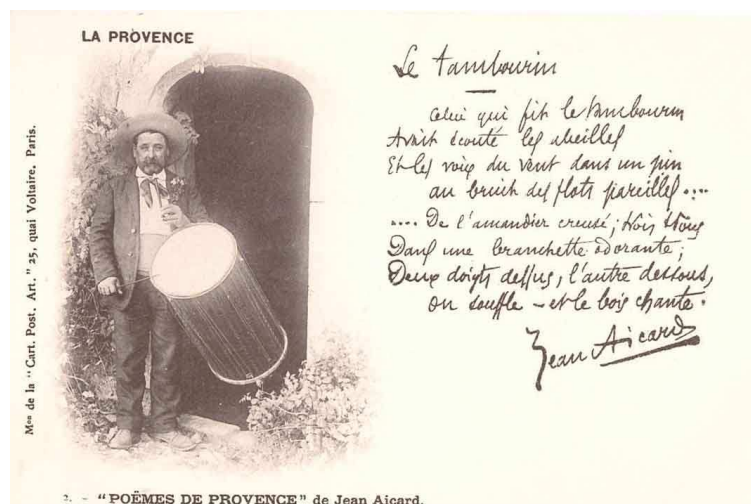 LA PROVENCE
Mᵒⁿ de la "Cart. Post. Art." 25, quai Voltaire, Paris.
Le tambourin
Celui qui fit le tambourin
Avait écouté les abeilles
Et les voix du vent dans un pin
au bruit des flots pareilles....
.... De l'amandier creusé; trois trous
Dans une branchette odorante;
Deux doigts dessus, l'autre dessous,
on souffle - et le bois chante.
Jean Aicard
2. - "POËMES DE PROVENCE" de Jean Aicard.